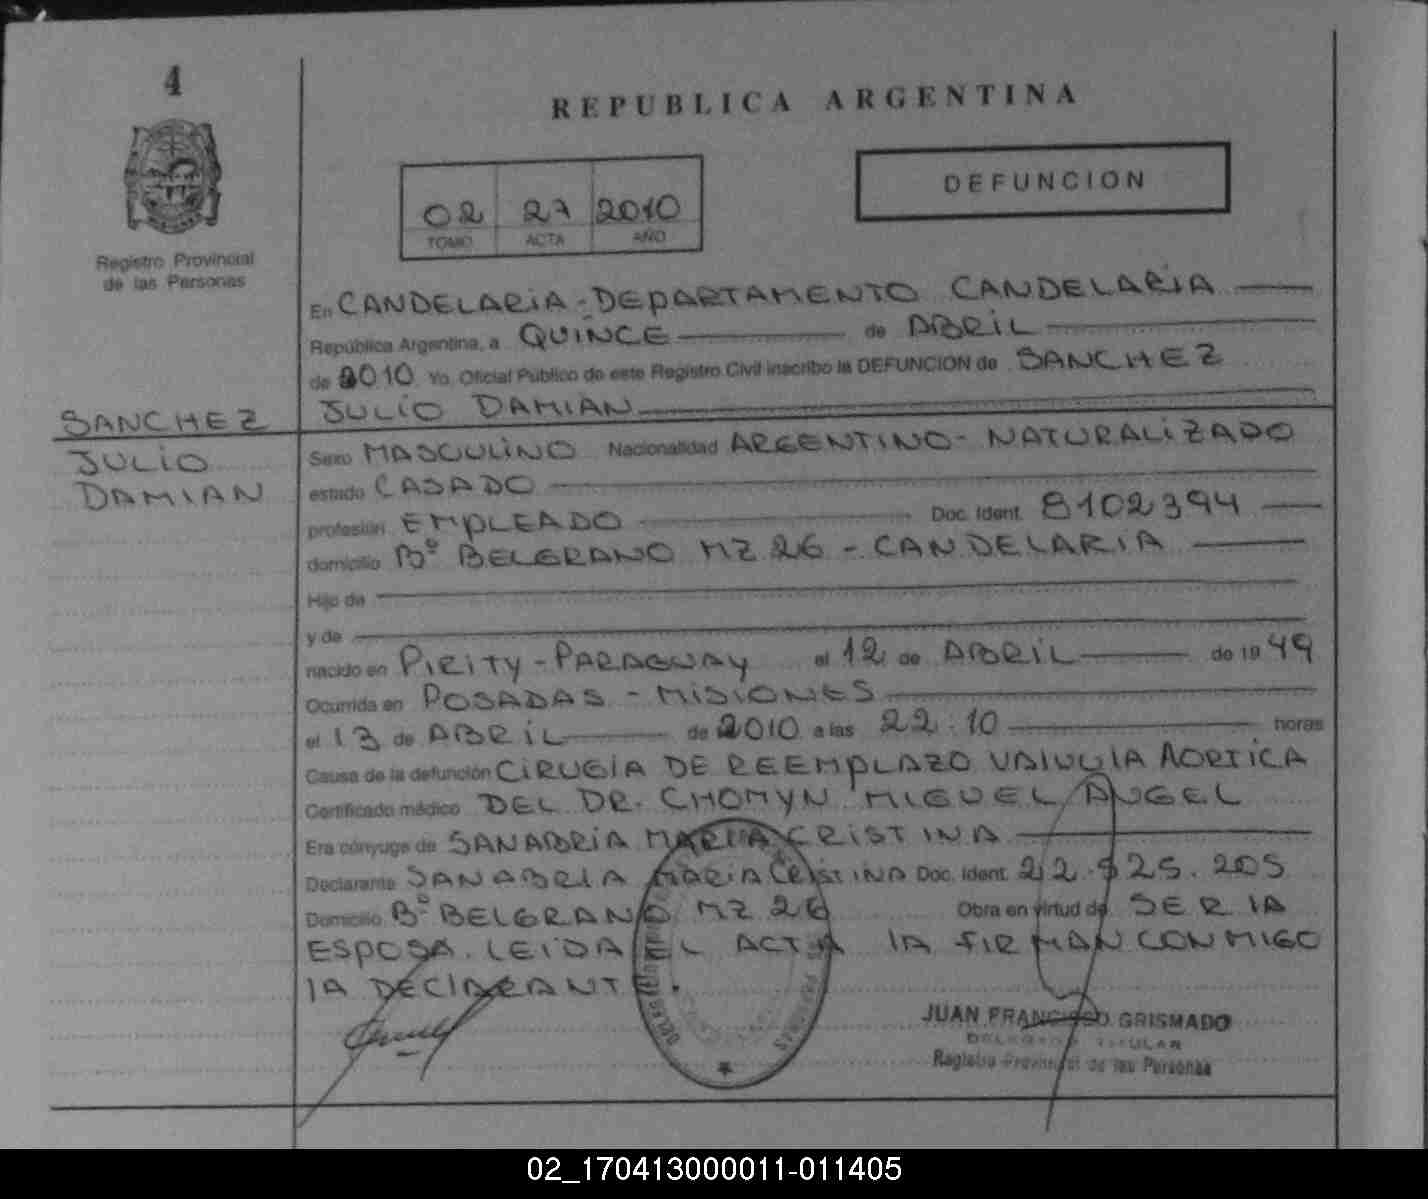 4
REPUBLICA ARGENTINA
DEFUNCION
02 27 2010
TOMO ACTA AÑO
Registro Provincial
de las Personas
En CANDELARIA - DEPARTAMENTO CANDELARIA
República Argentina, a QUINCE de ABRIL
de 2010 Yo Oficial Público de este Registro Civil inscribo la DEFUNCION de SANCHEZ
JULIO DAMIAN
SANCHEZ
JULIO
DAMIAN
Sexo MASCULINO Nacionalidad ARGENTINO - NATURALIZADO
estado CASADO
profesión EMPLEADO Doc. Ident. 8102394
domicilio Bº BELGRANO MZ 26 - CANDELARIA
Hijo de
y de
nacido en PIRITY - PARAGUAY el 12 de ABRIL de 19 49
Ocurrida en POSADAS - MISIONES
el 13 de ABRIL de 2010 a las 22:10 horas
Causa de la defunción CIRUGIA DE REEMPLAZO VALVULA AORTICA
Certificado médico DEL DR. CHOMYN MIGUEL ANGEL
Era cónyuge de SANABRIA MARIA CRISTINA
Declarante SANABRIA MARIA CRISTINA Doc. Ident. 22.825.205
Domicilio Bº BELGRANO MZ 26 Obra en virtud de SER LA
ESPOSA. LEIDA EL ACTA LA FIRMAN CONMIGO
LA DECLARANTE.
JUAN FRANCISCO GRISMADO
DELEGADO TITULAR
Registro Provincial de las Personas
02_170413000011-011405